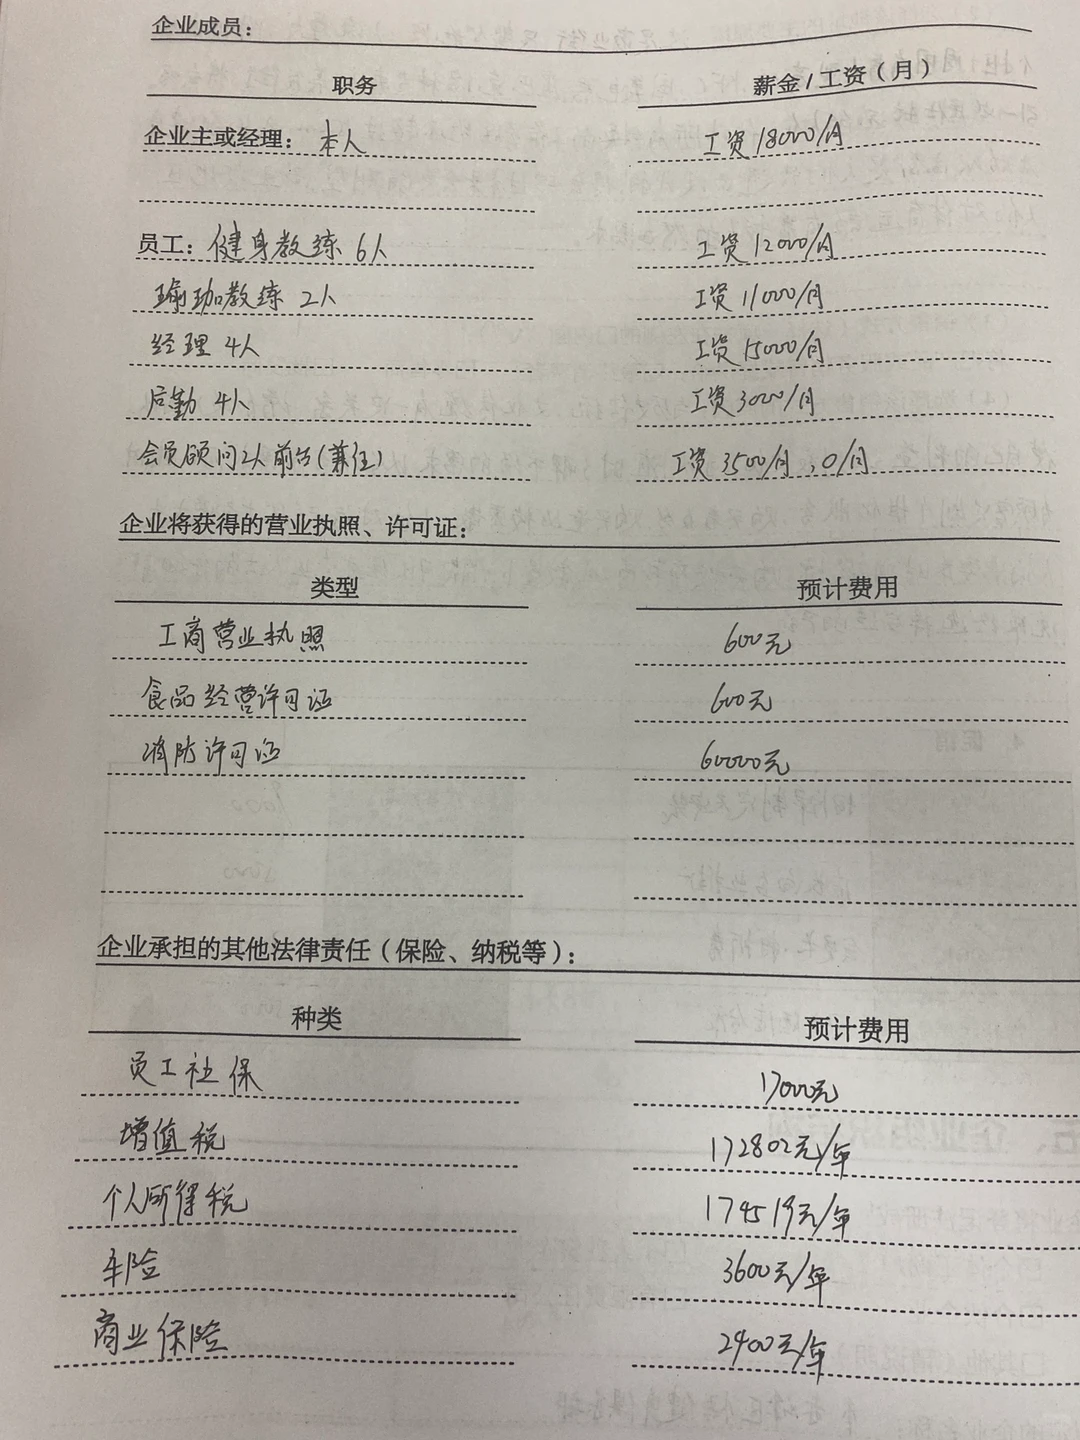 企业成员：
职务 薪金/工资（月）
企业主或经理：本人 工资18000/月
员工：健身教练 6人 工资12000/月
瑜珈教练 2人 工资11000/月
经理 4人 工资15000/月
后勤 4人 工资3000/月
会员顾问2人前台(兼任) 工资3500/月,0/月
企业将获得的营业执照、许可证：
类型 预计费用
工商营业执照 600元
食品经营许可证 600元
消防许可证 60000元
企业承担的其他法律责任（保险、纳税等）：
种类 预计费用
员工社保 17000元
增值税 172802元/年
个人所得税 174519元/年
车险 3600元/年
商业保险 2400元/年